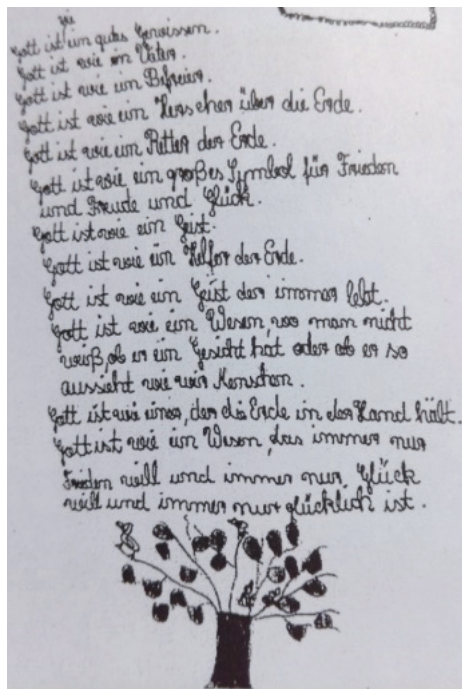 wie
Gott ist ein gutes Gewissen.
Gott ist wie ein Vater.
Gott ist wie ein Befreier.
Gott ist wie ein Herscher über die Erde.
Gott ist wie ein Retter der Erde.
Gott ist wie ein großes Symbol für Frieden
und Freude und Glück.
Gott ist wie ein Geist.
Gott ist wie ein Helfer der Erde.
Gott ist wie ein Geist der immer lebt.
Gott ist wie ein Wesen, wo man nicht
weiß, ob er ein Gesicht hat oder ob er so
aussieht wie wir Menschen.
Gott ist wie einer, der die Erde in der Hand hält.
Gott ist wie ein Wesen, das immer nur
Frieden will und immer nur Glück
will und immer nur glücklich ist.